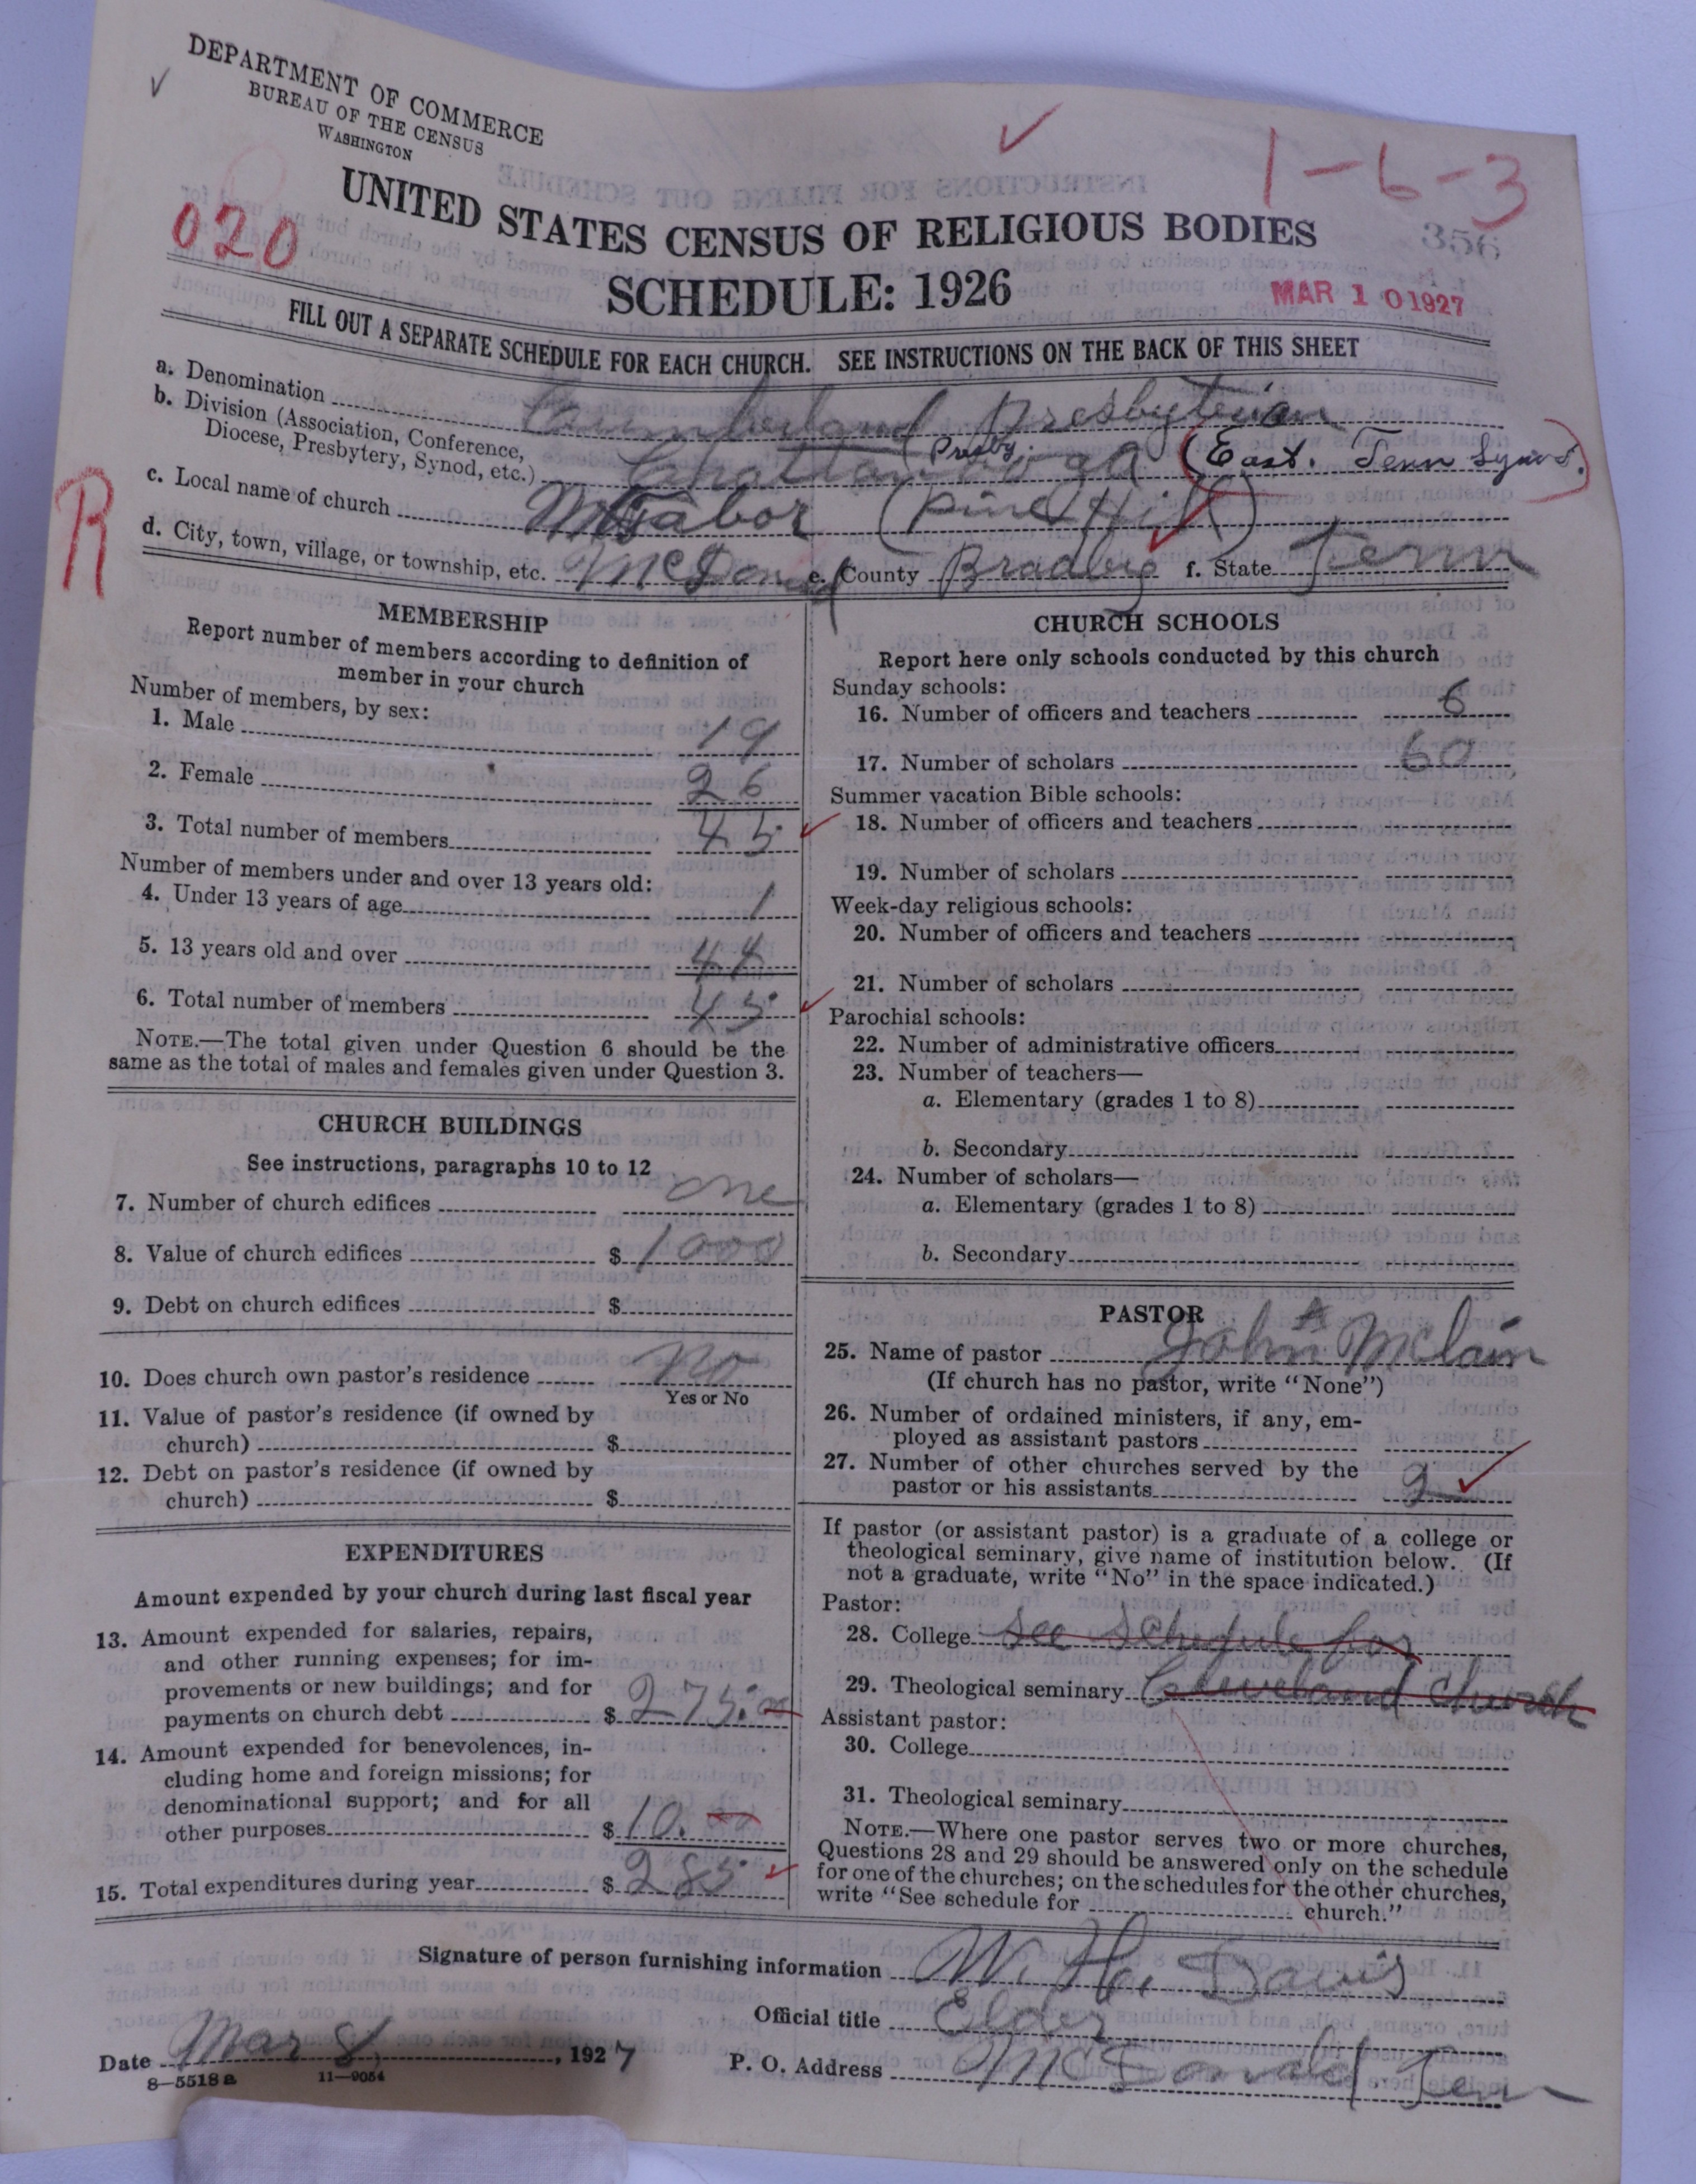 DEPARTMENT OF COMMERCE
BUREAU OF THE CENSUS
WASHINGTON
1-6-3
UNITED STATES CENSUS OF RELIGIOUS BODIES
020
356
SCHEDULE: 1926
MAR 10 1927
FILL OUT A SEPARATE SCHEDULE FOR EACH CHURCH. SEE INSTRUCTIONS ON THE BACK OF THIS SHEET
a. Denomination Cumberland Presbyterian
b. Division (Association, Conference, Diocese, Presbytery, Synod, etc.) Chattanooga Presby. (East. Tenn Synod.)
R
c. Local name of church Mt Tabor (Pine Hill)
d. City, town, village, or township, etc. McDonald e. County Bradley f. State Tenn
MEMBERSHIP
Report number of members according to definition of
member in your church
Number of members, by sex:
1. Male 19
2. Female 26
3. Total number of members 45
Number of members under and over 13 years old:
4. Under 13 years of age 1
5. 13 years old and over 44
6. Total number of members 45
NOTE.—The total given under Question 6 should be the
same as the total of males and females given under Question 3.
CHURCH BUILDINGS
See instructions, paragraphs 10 to 12
7. Number of church edifices one
8. Value of church edifices $ 1000
9. Debt on church edifices $
10. Does church own pastor's residence No
Yes or No
11. Value of pastor's residence (if owned by
church) $
12. Debt on pastor's residence (if owned by
church) $
EXPENDITURES
Amount expended by your church during last fiscal year
13. Amount expended for salaries, repairs,
and other running expenses; for im-
provements or new buildings; and for
payments on church debt $ 275.00
14. Amount expended for benevolences, in-
cluding home and foreign missions; for
denominational support; and for all
other purposes $ 10.00
15. Total expenditures during year $ 285
CHURCH SCHOOLS
Report here only schools conducted by this church
Sunday schools:
16. Number of officers and teachers 6
17. Number of scholars 60
Summer vacation Bible schools:
18. Number of officers and teachers
19. Number of scholars
Week-day religious schools:
20. Number of officers and teachers
21. Number of scholars
Parochial schools:
22. Number of administrative officers
23. Number of teachers—
a. Elementary (grades 1 to 8)
b. Secondary
24. Number of scholars—
a. Elementary (grades 1 to 8)
b. Secondary
PASTOR
25. Name of pastor John A McLain
(If church has no pastor, write "None")
26. Number of ordained ministers, if any, em-
ployed as assistant pastors
27. Number of other churches served by the
pastor or his assistants 2
If pastor (or assistant pastor) is a graduate of a college or
theological seminary, give name of institution below. (If
not a graduate, write "No" in the space indicated.)
Pastor:
28. College See Schedule for
29. Theological seminary Cleveland Church
Assistant pastor:
30. College
31. Theological seminary
NOTE.—Where one pastor serves two or more churches,
Questions 28 and 29 should be answered only on the schedule
for one of the churches; on the schedules for the other churches,
write "See schedule for church."
Signature of person furnishing information W. H. Davis
Official title Elder
Date Mar 8, 1927 P. O. Address McDonald Tenn
8—5518 a 11—9054